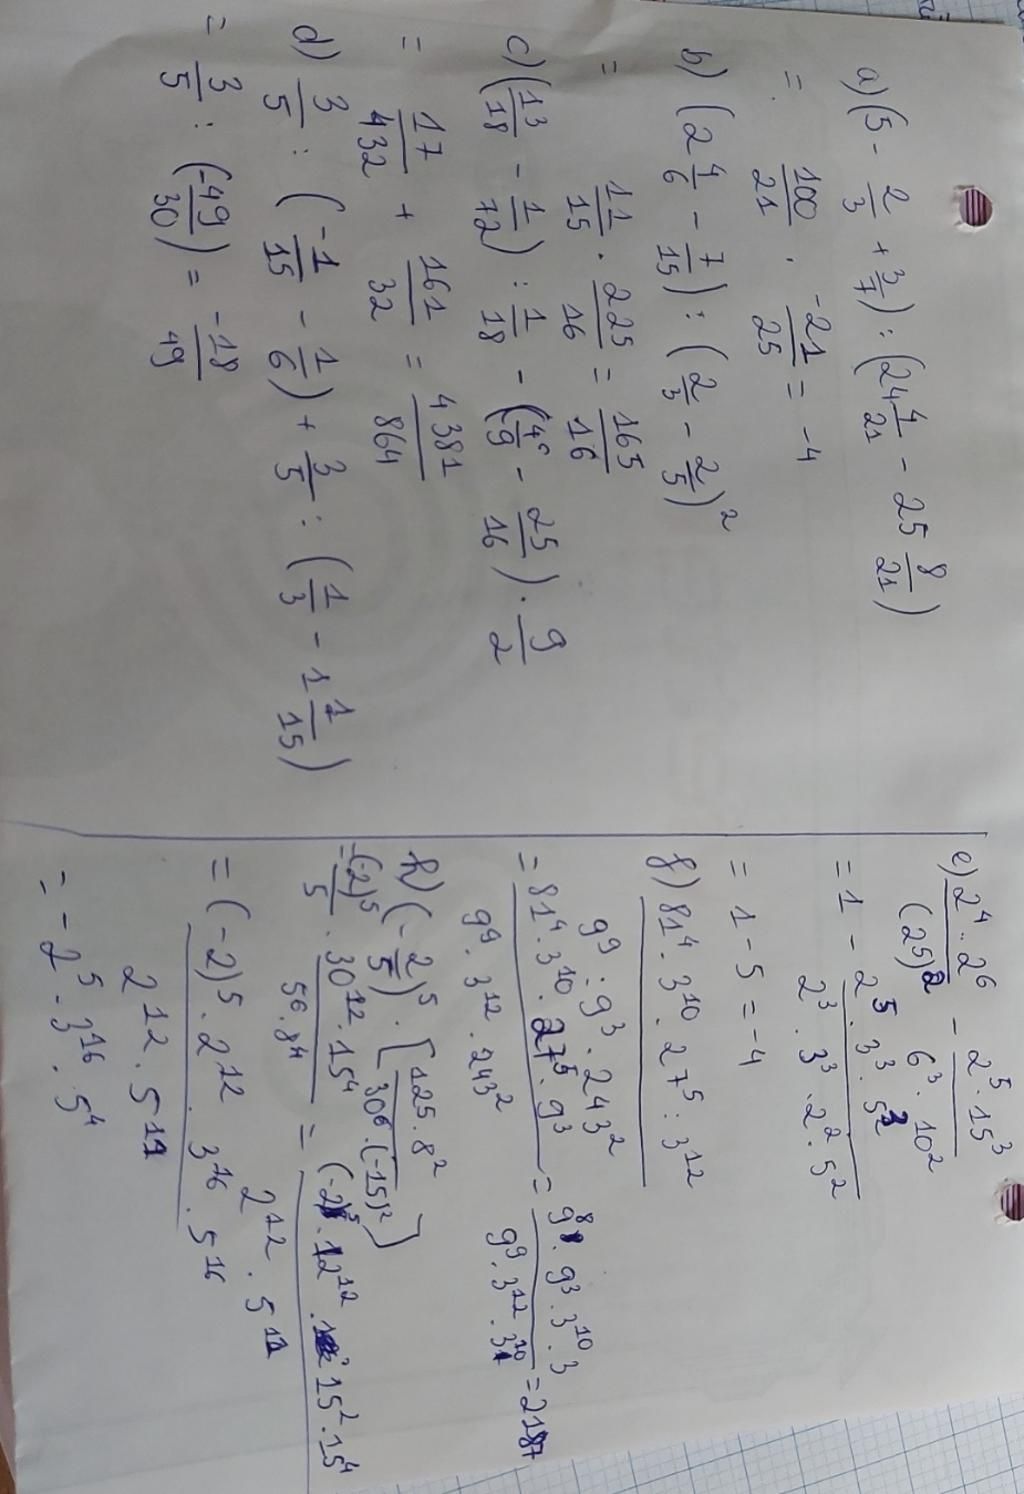 a) (5 - 2/3 + 3/7) : (24 4/21 - 25 8/21)
= 100/21 · -21/25 = -4
b) (2 4/6 - 7/15) : (2/3 - 2/5)²
= 11/15 · 225/16 = 165/16
c) (13/18 - 1/72) : 1/18 - ( - 25/16) · 9/2
= 17/432 + 161/32 = 4381/864
d) 3/5 : (-1/15 - 1/6) + 3/5 : (1/3 - 1 1/15)
= 3/5 : (-49/30) = -18/49
e) 2⁴ · 2⁶ / (25)² - 2⁵ · 15³ / 6³ · 10²
= 1 - 2⁵ · 3³ · 5³ / 2³ · 3³ · 2² · 5²
= 1 - 5 = -4
f) 81⁴ · 3¹⁰ · 27⁵ : 3¹² / 9⁹ : 9³ · 243²
= 81⁴ · 3¹⁰ · 27⁵ · 9³ / 9⁹ · 3¹² · 243² = 9⁸ · 9³ · 3¹⁰ · 3 / 9⁹ · 3¹² · 3¹⁰ = 2187
h) (-2/5)⁵ · [125 · 8² / 30⁶ · (-15)²]
= (-2)⁵/5 · 30¹² · 15⁴ / 5⁶ · 8⁴ = (-2)⁵ · 12¹² · 15² · 15⁴ / 2¹² · 5¹¹
= (-2)⁵ · 2¹² · 3¹⁶ · 5¹⁶ / 2¹² · 5¹¹
= -2⁵ · 3¹⁶ · 5⁴